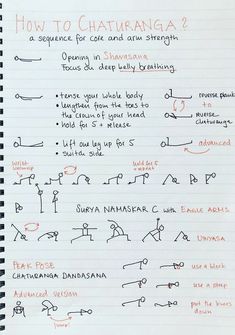 HOW TO CHATURANGA?
a sequence for core and arm strength
Opening in Shavasana
Focus on deep belly breathing
• tense your whole body
• lengthen from the toes to
the crown of your head
• hold for 5 + release
reverse plank
to
reverse
chaturanga
• Lift one leg up for 5
• switch side
advanced
Wrist
warmup
Hold for 5
+ repeat
SURYA NAMASKAR C with EAGLE ARMS
VINYASA
PEAK POSE
CHATURANGA DANDASANA
use a block
use a strap
Advanced version
put the knees
down
jump!